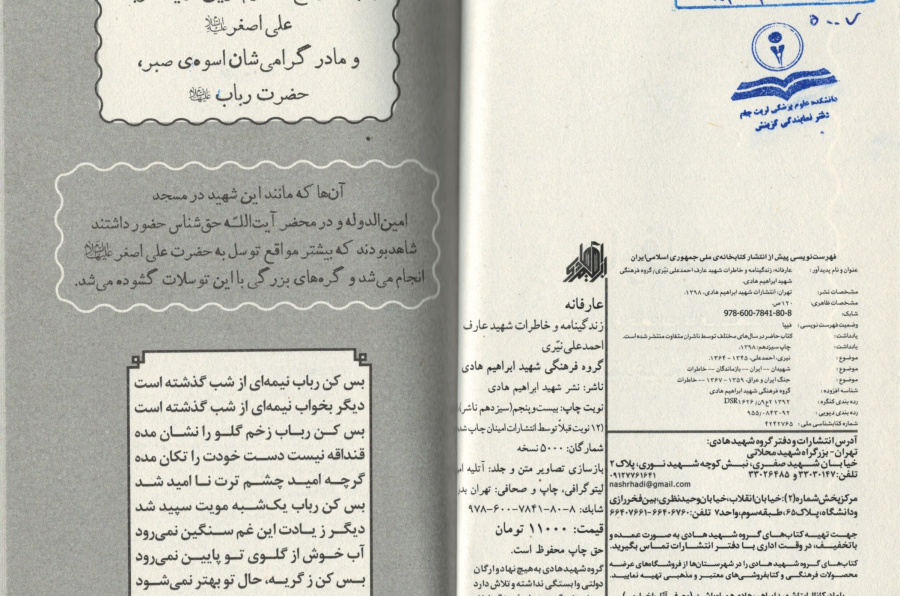 علی اصغر
و مادر گرامی‌شان اسوه‌ی صبر،
حضرت رباب
آن‌ها که مانند این شهید در مسجد
امین‌الدوله و در محضر آیت‌اللّه حق‌شناس حضور داشتند
شاهد بودند که بیشتر مواقع توسل به حضرت علی اصغر
انجام می‌شد و گره‌های بزرگی با این توسلات گشوده می‌شد.
بس کن رباب نیمه‌ای از شب گذشته است
دیگر بخواب نیمه‌ای از شب گذشته است
بس کـن ربـاب زخـم گلـو را نشـان مده
قنداقه نیست دست خودت را تکان مده
گرچـه امیـد چشـم ترت نـا امید شـد
بس کن رباب یک‌شـبه مویت سپید شد
دیگر ز یـادت این غم سـنگین نمی‌رود
آب خـوش از گلـوی تـو پاییـن نمی‌رود
بـس کن ز گریـه، حال تو بهتر نمی‌شـود
۵۰۰۷
دانشکده علوم پزشکی تربت جام
دفتر نمایندگی گزینش
عارفانه
زندگینامه و خاطرات شهید عارف
احمدعلی نیّری
گروه فرهنگی شهید ابراهیم هادی
ناشر: نشر شهید ابراهیم هادی
نوبت چاپ: بیست‌وپنجم (سیزدهم ناشر)
(۱۲ نوبت قبلا توسط انتشارات امینان چاپ
شمارگان: ۵۰۰۰ نسخه
بازسازی تصاویر متن و جلد: آتلیه
لیتوگرافی، چاپ و صحافی: تهران
شابك: ۸-۸۰-۷۸۴۱-۶۰۰-۹۷۸
قیمت: ۱۱۰۰۰ تومان
حق چاپ محفوظ است.
گروه شهید هادی به هیچ نهاد و ارگان
دولتی وابستگی نداشته و تلاش دارد
فهرست‌نویسی پیش از انتشار کتابخانه‌ی ملی جمهوری اسلامی ایران
عنوان و نام پدیدآور: عارفانه: زندگینامه و خاطرات شهید عارف احمدعلی نیّری/ گروه فرهنگی
شهید ابراهیم هادی.
مشخصات نشر: تهران: انتشارات شهید ابراهیم هادی، ۱۳۹۸.
مشخصات ظاهری: ۱۲۰ص.
شابک: 978-600-7841-80-8
وضعیت فهرست نویسی: فیپا
یادداشت: کتاب حاضر در سال‌های مختلف توسط ناشران متفاوت منتشر شده است.
یادداشت: چاپ سیزدهم: ۱۳۹۸.
موضوع: نیری، احمدعلی، ۱۳۴۵ - ۱۳۶۴.
موضوع: شهیدان -- ایران -- بازماندگان -- خاطرات
موضوع: جنگ ایران و عراق، ۱۳۵۹-۱۳۶۷ -- خاطرات
شناسه افزوده: گروه فرهنگی شهید ابراهیم هادی
رده بندی کنگره: DSR۱۶۲۶
رده بندی دیویی: ۹۵۵/۰۸۴۳۰۹۲
شماره کتابشناسی ملی: ۴۲۴۲۷۶۵
آدرس انتشارات و دفتر گروه شهید هادی:
تهران- بزرگراه شهید محلاتی
خیابـان شـهید صفـری، نبـش کوچه شـهید نـوری، پلاک ۲
تلفن: ۳۳۰۳۰۱۴۷ و ۳۳۰۲۶۴۸۵ ۰۹۱۲۷۷۶۱۶۴۱
nashrhadi@gmail.com
مرکز پخش شماره (۲): خیابان انقلاب، خیابان وحید نظری، بین فخر رازی
و دانشگاه، پلاک ۶۵، طبقه سوم، واحد ۷ تلفن: ۶۶۴۰۶۷۶۰-۶۶۴۰۷۶۶۱
جهـت تهیـه کتاب‌هـای گـروه شـهید هـادی به صورت عمـده و
باتخفیـف، در وقـت اداری بـا دفتـر انتشـارات تمـاس بگیریـد.
کتاب‌هـای گـروه شـهید هـادی را در شهرسـتان‌ها از فروشگاه‌های عرضـه
محصـولات فرهنگـی و کتابفروشی‌های معتبـر و مذهبـی تهیـه نماییـد.